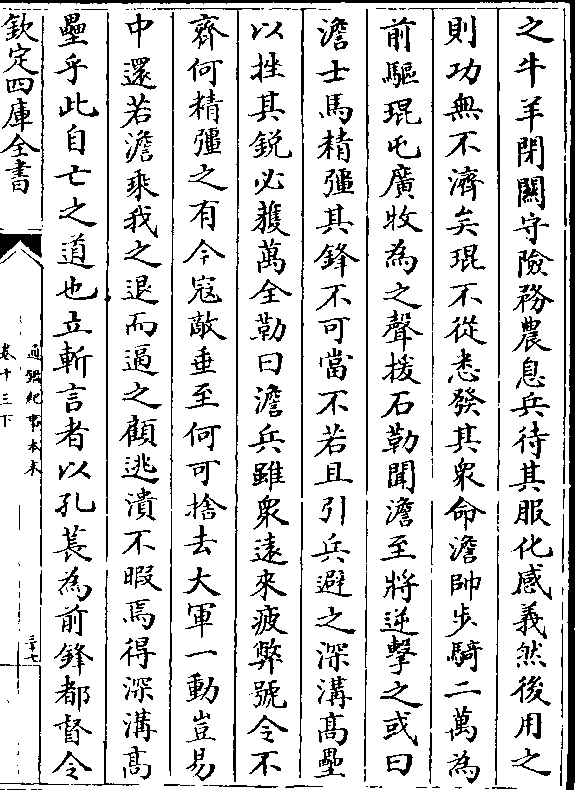 之牛羊閉關守險務農息兵待其服化感義然後用之
則功無不濟矣琨不從悉發其衆命澹帥步騎二萬為
前驅琨屯廣牧為之聲援石勒聞澹至將逆擊之或曰
澹士馬精彊其鋒不可當不若且引兵避之深溝髙壘
以挫其鋭必獲萬全勒曰澹兵雖衆遠來疲弊號令不
齊何精彊之有今寇敵垂至何可捨去大軍一動豈易
中還若澹乘我之退而逼之顧逃潰不暇焉得深溝髙
壘乎此自亡之道也立斬言者以孔萇為前鋒都督令
欽定四庫全書
通鑑紀事本末
卷十三下
三十七